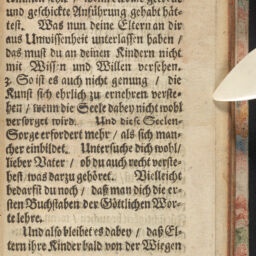 und geschickte Anführung gehabt hät-
test. Was nun deine Eltern an dir
aus Unwissenheit unterlassen haben /
das must du an deinen Kindern nicht
mit Wissen und Willen versehen.
3. So ist es auch nicht genung / die
Kunst sich ehrlich zu ernehren verste-
hen / wenn die Seele dabey nicht wohl
versorget wird. Und diese Seelen-
Sorge erfordert mehr / als sich man-
cher einbildet. Untersuche dich wohl /
lieber Vater / ob du auch recht verste-
hest / was darzu gehöret. Vielleicht
bedarfst du noch / daß man dich die er-
sten Buchstaben der Göttlichen Wor-
te lehre.
Und also bleibet es dabey / daß El-
tern ihre Kinder bald von der Wiegen